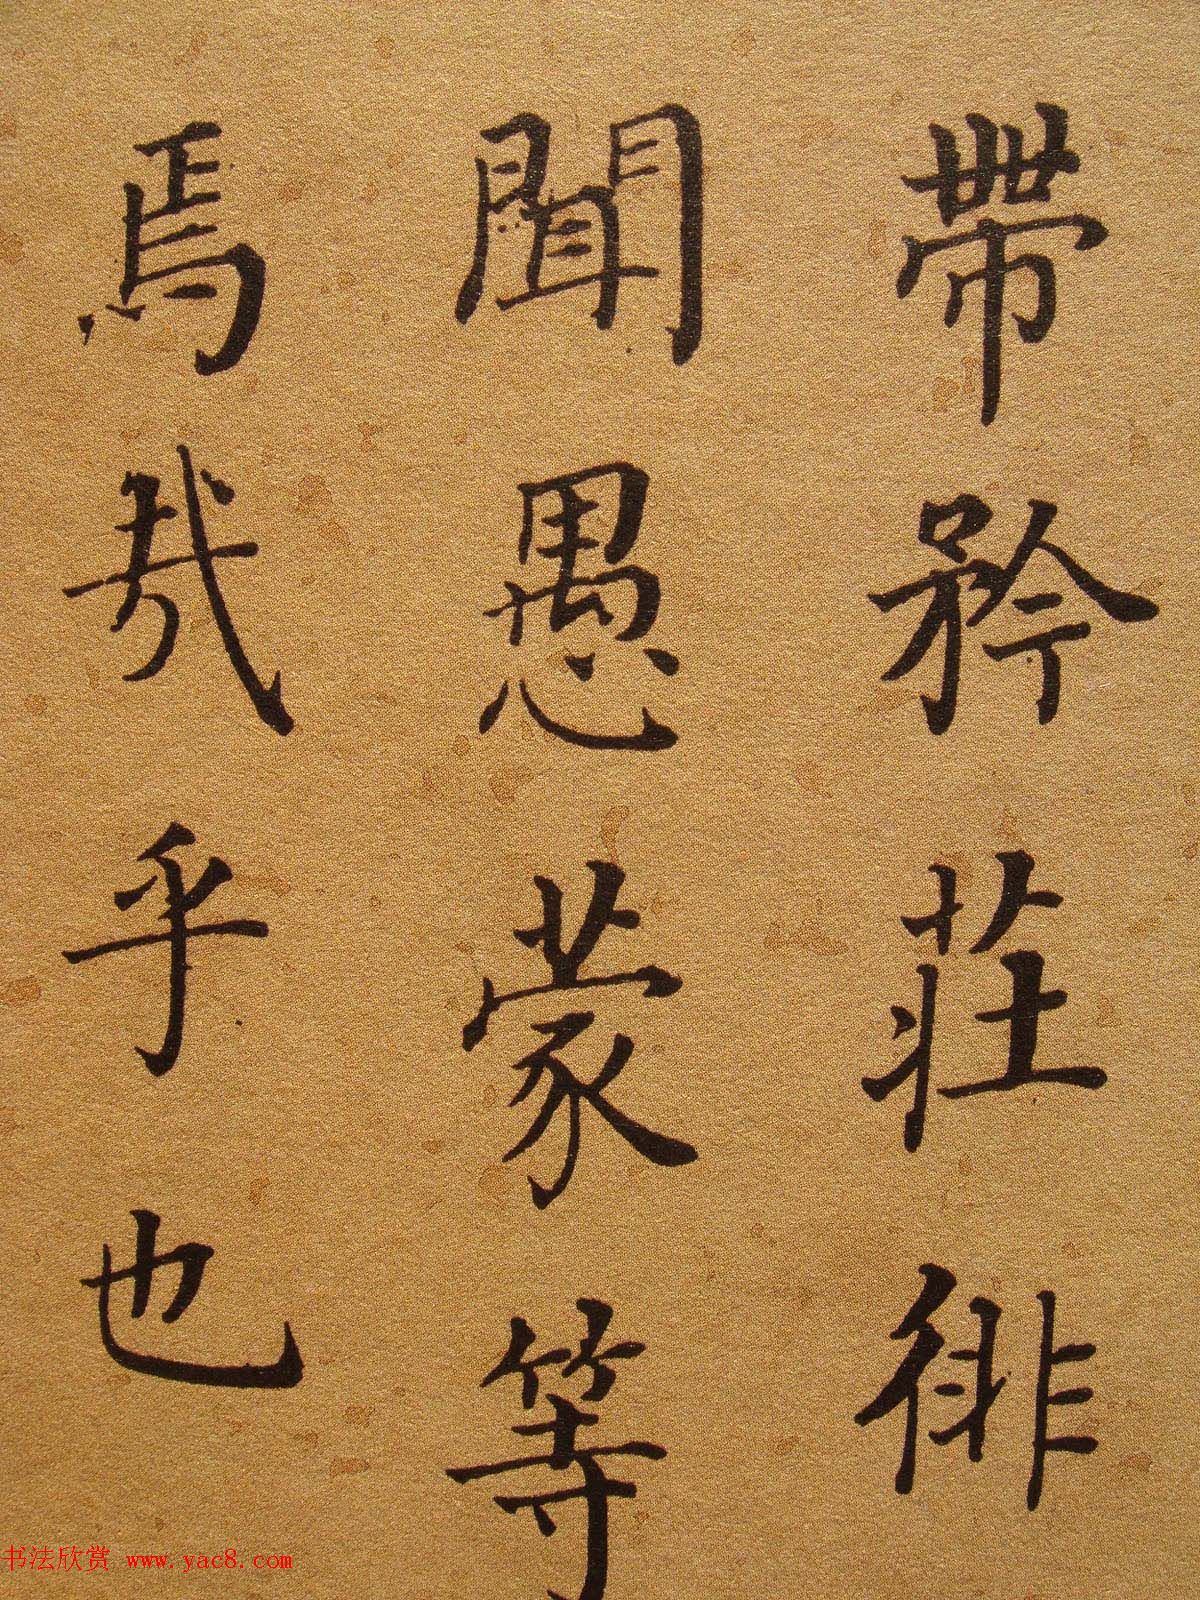 帶矜莊徘
聞愚蒙等
焉哉乎也
书法欣赏 www.yac8.com